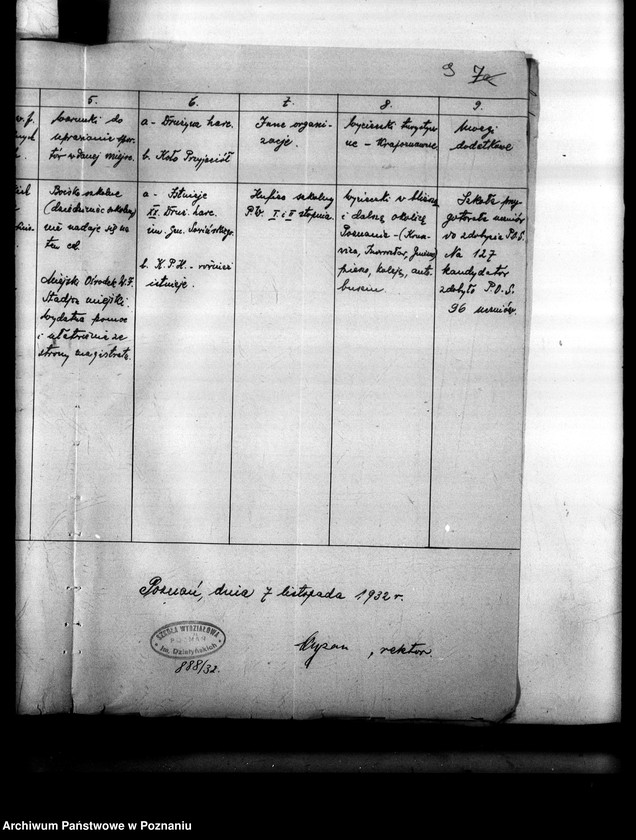 9 7a
5. 6. 7. 8. 9.
Warunki do
uprawiania spor-
tów w danej miejsc.
a - Drużyna harc.
b. Koło Przyjaciół
Inne organi-
zacje.
Wycieczki turystycz-
ne - Krajoznawcze
Uwagi
dodatkowe
Boisko szkolne
(dziedziniec szkolny)
nie nadaje się na
ten cel
Miejski Ośrodek W.F.
Stadjon miejski:
wydatna pomoc
i ułatwienie ze
strony magistratu.
a - Istnieje
XI Druż. harc.
im. Jen. Sowińskiego.
b. K.P.H. - również
istnieje.
Hufiec szkolny
P.W. I i II stopnia.
Wycieczki w bliższą
i dalszą okolicę
Poznania - (Krusz-
wica, Inowrocław,
pieszo, koleją, auto-
busem
Szkoła przy-
gotowała uczniów
do zdobycia P.O.S.
Na 127
kandydatów
zdobyło P.O.S.
96 uczniów.
Poznań, dnia 7 listopada 1932 r.
SZKOŁA WYDZIAŁOWA
POZNAŃ
im. Działyńskich
888/32.
, rektor.
Archiwum Państwowe w Poznaniu